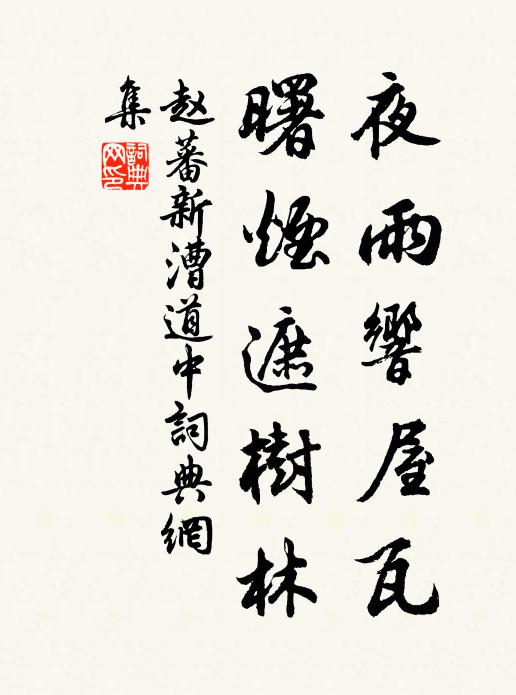 夜雨響屋瓦
曙煙遮樹林
赵蕃新漕道中詞典網
集
詞典網印